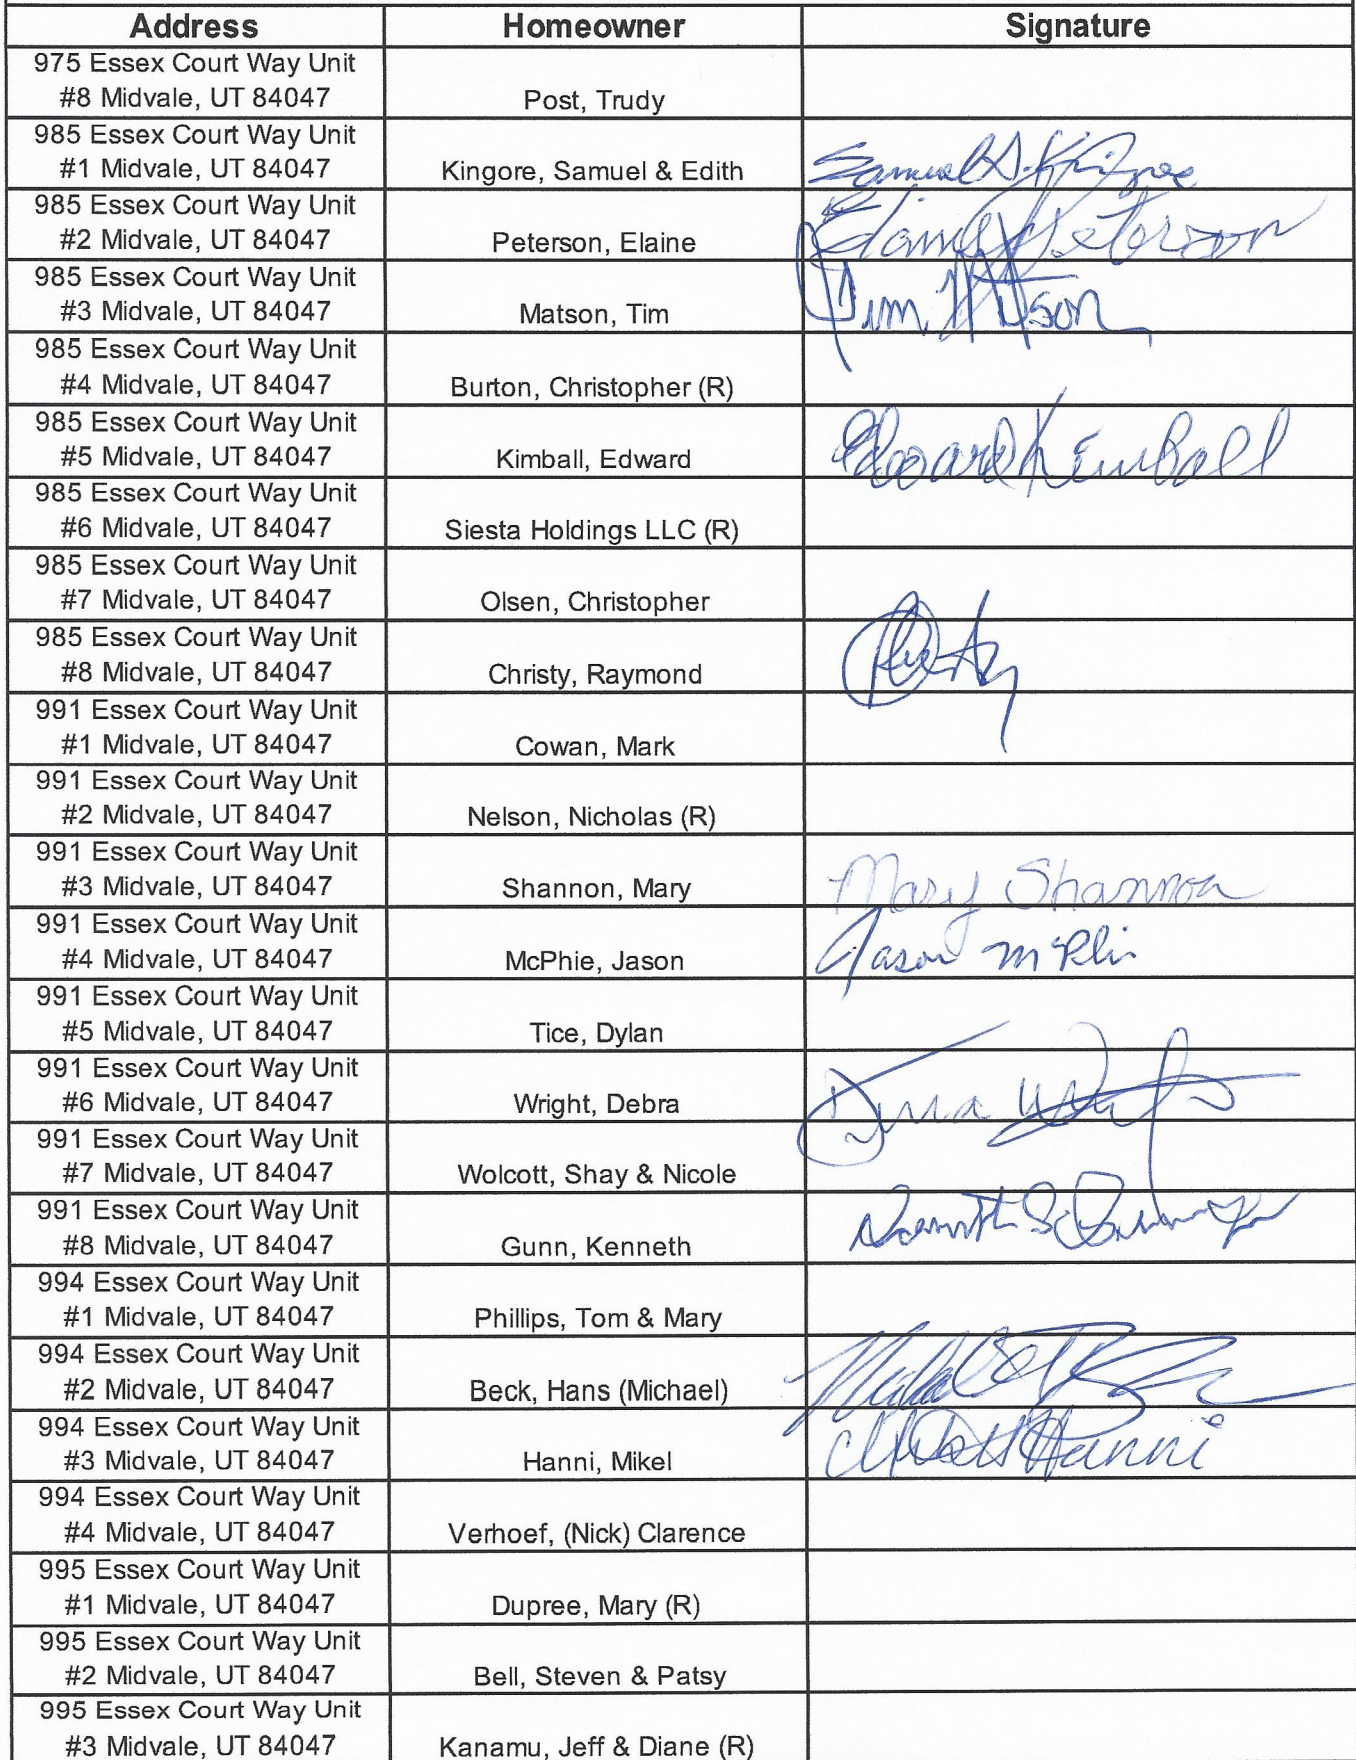 Address Homeowner Signature
975 Essex Court Way Unit
#8 Midvale, UT 84047 Post, Trudy
985 Essex Court Way Unit
#1 Midvale, UT 84047 Kingore, Samuel & Edith Samuel
985 Essex Court Way Unit
#2 Midvale, UT 84047 Peterson, Elaine Elaine Peterson
985 Essex Court Way Unit
#3 Midvale, UT 84047 Matson, Tim Tim Matson
985 Essex Court Way Unit
#4 Midvale, UT 84047 Burton, Christopher (R)
985 Essex Court Way Unit
#5 Midvale, UT 84047 Kimball, Edward Edward Kimball
985 Essex Court Way Unit
#6 Midvale, UT 84047 Siesta Holdings LLC (R)
985 Essex Court Way Unit
#7 Midvale, UT 84047 Olsen, Christopher
985 Essex Court Way Unit
#8 Midvale, UT 84047 Christy, Raymond
991 Essex Court Way Unit
#1 Midvale, UT 84047 Cowan, Mark
991 Essex Court Way Unit
#2 Midvale, UT 84047 Nelson, Nicholas (R)
991 Essex Court Way Unit
#3 Midvale, UT 84047 Shannon, Mary Mary Shannon
991 Essex Court Way Unit
#4 Midvale, UT 84047 McPhie, Jason Jason McPhie
991 Essex Court Way Unit
#5 Midvale, UT 84047 Tice, Dylan
991 Essex Court Way Unit
#6 Midvale, UT 84047 Wright, Debra
991 Essex Court Way Unit
#7 Midvale, UT 84047 Wolcott, Shay & Nicole
991 Essex Court Way Unit
#8 Midvale, UT 84047 Gunn, Kenneth
994 Essex Court Way Unit
#1 Midvale, UT 84047 Phillips, Tom & Mary
994 Essex Court Way Unit
#2 Midvale, UT 84047 Beck, Hans (Michael)
994 Essex Court Way Unit
#3 Midvale, UT 84047 Hanni, Mikel Hanni
994 Essex Court Way Unit
#4 Midvale, UT 84047 Verhoef, (Nick) Clarence
995 Essex Court Way Unit
#1 Midvale, UT 84047 Dupree, Mary (R)
995 Essex Court Way Unit
#2 Midvale, UT 84047 Bell, Steven & Patsy
995 Essex Court Way Unit
#3 Midvale, UT 84047 Kanamu, Jeff & Diane (R)